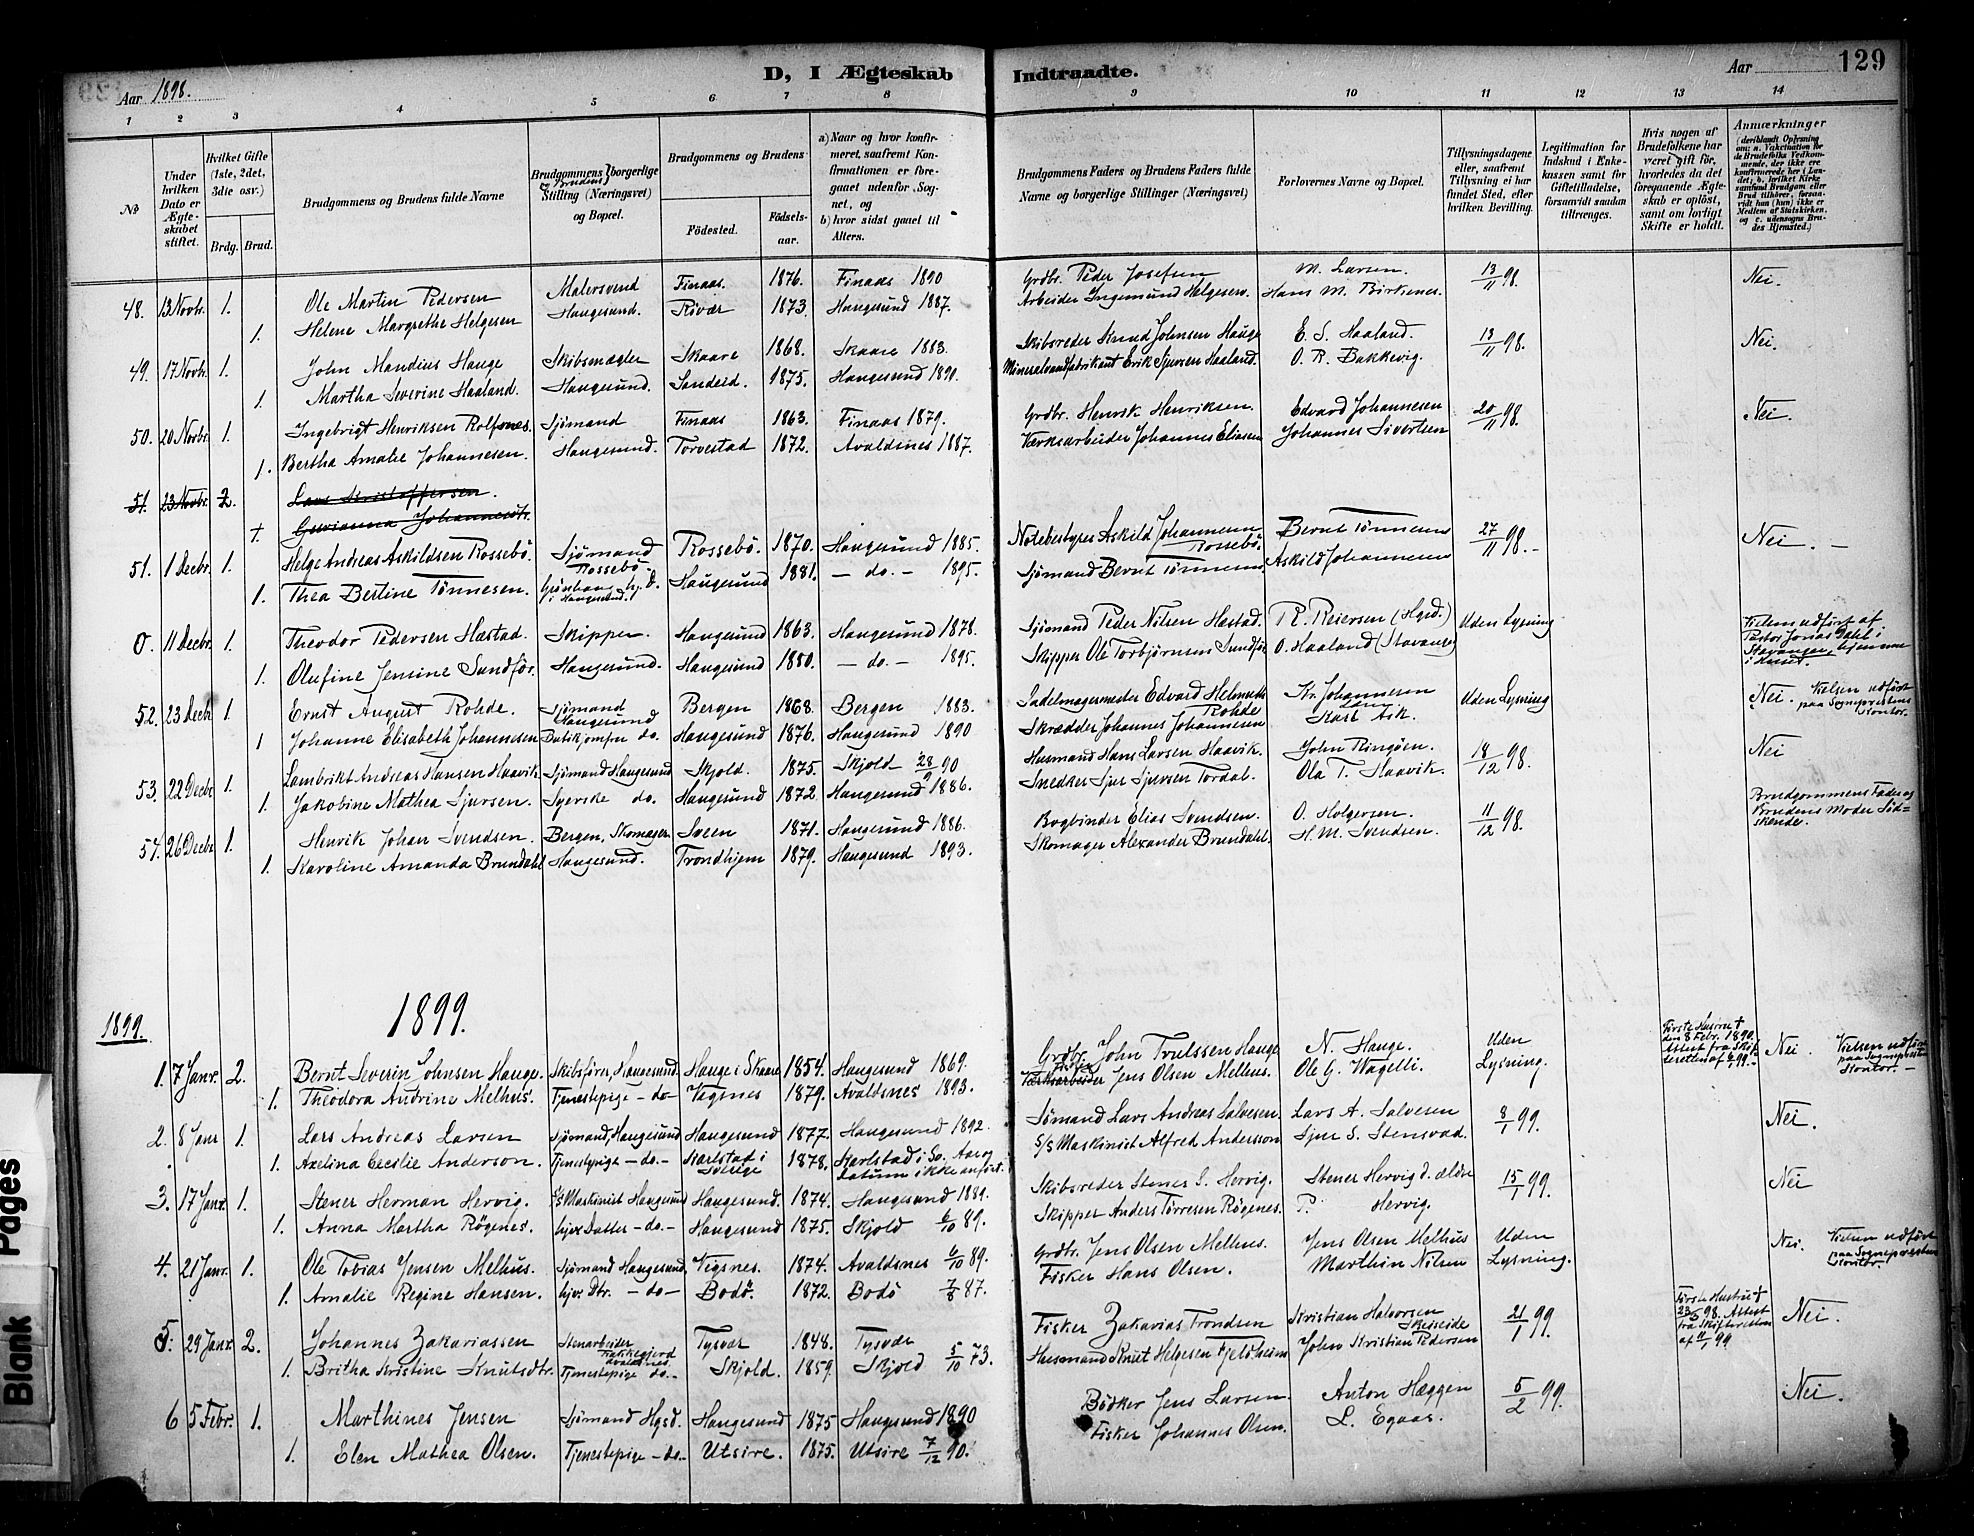 Aar 1898.
D, I Ægteskab Indtraadte.
Aar
129
1 2 3 4 5 6 7 8 9 10 11 12 13 14
No
Under hvilken Dato er Ægteskabet stiftet.
Hvilket Gifte (1ste, 2det, 3die osv.)
Brdg. Brud.
Brudgommens og Brudens fulde Navne
Brudgommens og Brudens borgerlige Stilling (Næringsvei) og Bopæl.
Brudgommens og Brudens
Fødested.
Fødselsaar.
a) Naar og hvor konfirmeret, saafremt Konfirmationen er foregaaet udenfor Sognet, og
b) hvor sidst gaaet til Alters.
Brudgommens Faders og Brudens Faders fulde Navne og borgerlige Stillinger (Næringsvei)
Forlovernes Navne og Bopæl.
Tillysningsdagene eller, saafremt Tillysning ei har fundet Sted, efter hvilken Bevilling.
Legitimation for Indskud i Enkekassen samt for Giftetilladelse, forsaavidt saadan tiltrænges.
Hvis nogen af Brudefolkene har været gift før, hvorledes da det foregaaende Ægteskab er opløst, samt om lovligt Skifte er holdt.
Anmærkninger (deriblandt Oplysning om: a. Vakcination for de Brudefolks Vedkommende, der ikke ere konfirmerede her i Landet, b. hvilket Kirkesamfund Brudgom eller Brud tilhører, forsaavidt hun (han) ikke er Medlem af Statskirken, og c. udensogns Brudes Hjemsted.)
48. 13 Novbr. 1. Ole Martin Pedersen Malersvend Finaas. 1876. Finaas 1890 Grdbr. Peder Josefsen M. Larsen. 13/11 98. Nei.
1. Helene Margrethe Helgesen Haugesund. Røvær 1873. Haugesund 1887. Arbeider Ingemund Helgesen. Hans M. Birkenes.
49. 17 Novbr. 1. John Mandius Hauge Skibsmægler Skaare 1868. Skaare 1883. Skibsreder Knud Johnsen Hauge E. S. Haaland. 13/11 98. Nei.
1. Martha Severine Haaland. Haugesund. Sandeid. 1875. Haugesund 1891. Mineralvandfabrikant Erik Sjursen Haaland. O. R. Bakkevig.
50. 20 Novbr. 1. Ingebrigt Henriksen Rolfsnes. Sjömand Finaas 1863. Finaas 1879. Grdbr. Henrik Henriksen. Edvard Johannesen 20/11 98. Nei.
1. Bertha Amalie Johannesen. Haugesund. Torvestad 1872. Avaldsnes 1887. Værksarbeider Johannes Eliasen Johannes Sivertsen
51. 23 Novbr. 2. Lars Kristoffersen.
1. Johannesdtr.
51. 1 Decbr. 1. Helge Andreas Askildsen Rossebö. Sjömand Rossebö Rossebö. 1870. Haugesund 1885. Notebestyrer Askild Johannesen Rossebö Bernt Tönnesen 27/11 98.- Nei. -
1. Thea Bertine Tönnesen. hj. D. i Haugesund. Haugesund 1881. - do. - 1895. Sjömand Bernt Tönnesen. Askild Johannesen
0. 11 Decbr. 1. Theodor Pedersen Hæstad. Skipper. Haugesund 1863. Haugesund 1878. Sjömand Peder Nilsen Hæstad. R. Reiersen (Hgsd.) Uden Lysning Vielsen udført af Pastor Jonas Dahl i Stavanger, hjemme i Huset.
1. Olufine Jensine Sundför. Haugesund. Haugesund 1880. - do. - 1895. Skipper Ole Torbjørnsen Sundför O. Haaland (Stavanger)
52. 23 Decbr 1. Ernst August Rohde. Sjömand Haugesund Bergen 1868. Bergen 1883. Sadelmagermester Edvard Helmuth Rohde Kr. Johannesen Uden Lysning Nei. Vielsen udført paa Sogneprestens Kontor.
1 Johanne Elisabeth Johannesen Butikjomfru do. Haugesund 1876. Haugesund 1890 Skrædder Johannes Johannesen Karl Ask.
53. 22 Decbr 1. Lambrikt Andreas Hansen Haavik. Sjömand Haugesund Skjold. 1875. Skjold 28/9 90 Husmand Hans Larsen Haavik. John Ringöen. 18/12 98. Nei
1. Jakobine Mathea Sjursen. Syerske do. Haugesund 1872 Haugesund 1886. Snedker Sjur Sjursen Tordal. Ola T. Haavik.
54. 26 Decbr 1. Henrik Johan Svendsen. Bergen, Skomager Sveen 1871. Haugesund 1886. Bogbinder Elias Svendsen. O. Holgersen. 11/12 98. Brudgommens Fader og Brudens Moder Södskende.
1. Karoline Amanda Brundahl Haugesund. Trondhjem 1879. Haugesund 1893. Skomager Alexander Brundahl. H. M. Svendsen.
1899. 1899.
1. 7 Janr. 2. Bernt Severin Johnsen Hauge. Skibsfører, Haugesund. Hauge i Skaare 1854. Haugesund 1869. Grdbr. John Trulssen Hauge N. Hauge. Uden Lysning. Første Hustru † den 8 Febr. 1890. Attest fra Skifteretten af 6/1 99. Nei. Vielsen udført paa Sogneprestens Kontor. -
1. Theodora Andrine Melhus. Tjenestepige - do - Vigsnes 1879. Avaldsnes 1893. Værksarbeider Jens Olsen Melhus. Ole G. Wagelli.
2. 8 Janr 1. Lars Andreas Larsen Sjömand, Haugesund Haugesund 1877. Haugesund 1892. Sømand Lars Andreas Salvesen. Lars A. Salvesen 8/1 99. Nei.
1. Axelina Cecilie Anderson. Tjenestepige - do. - Karlstad i Sverige 1878. Karlstad i Sv. Aar og Datum ikke anført. S/S Maskinist Alfred Andersson Sjur S. Stensvad.
3. 17 Janr. 1. Stener Herman Hervig. S/S Maskinist Haugesund Haugesund. 1874. Haugesund 1889. Skibsreder Stener S. Hervig. Stener Hervig d. ældre 15/1 99. Nei
1. Anna Martha Røgenes. hjv. Datter - do. - Haugesund 1875. Skjold 6/10 89. Skipper Anders Tørresen Røgenes. P. Hervig.
4. 21 Janr. 1. Ole Tobias Jensen Melhus. Sjömand Haugesund, Vigsnes. 1874. Avaldsnes 6/10 89. Grdbr. Jens Olsen Melhus. Jens Olsen Melhus Uden Lysning. Nei. Vielsen udført paa Sogneprestens Kontor.
1. Amalie Regine Hansen. hjv. Dtr. - do - Bodö. 1872. Bodö 7/8 87. Fisker Hans Olsen. Marthin Nilsen
5. 29 Janr. 2. Johannes Zakariassen Stenarbeider Avaldsnes Tysvær 1848. Tysvær Fisker Zakarias Trondsen Kristian Halvorsen Skeiseide 21/1 99. Første Hustru † 23/5 98. Attest fra Skifteretten af 11/1 99 Nei.
1. Britha Kristine Knutsdtr. Tjenestepige do. - Skjold. 1859. Skjold 5/10 73. Husmand Knut Helgesen Fjeldheim John Kristian Pedersen
6 5 Febr. 1. Marthines Jensen Sjömand Hgsd. Haugesund 1875 Haugesund 1890 Bödker Jens Larsen. Anton Hæggen 5/2 99. Nei.
1. Elen Mathea Olsen. Tjenestepige - do. - Utsire. 1875. Utsire 7/12 90. Fisker Johannes Olsen. L. Egaas.
Blank Pages